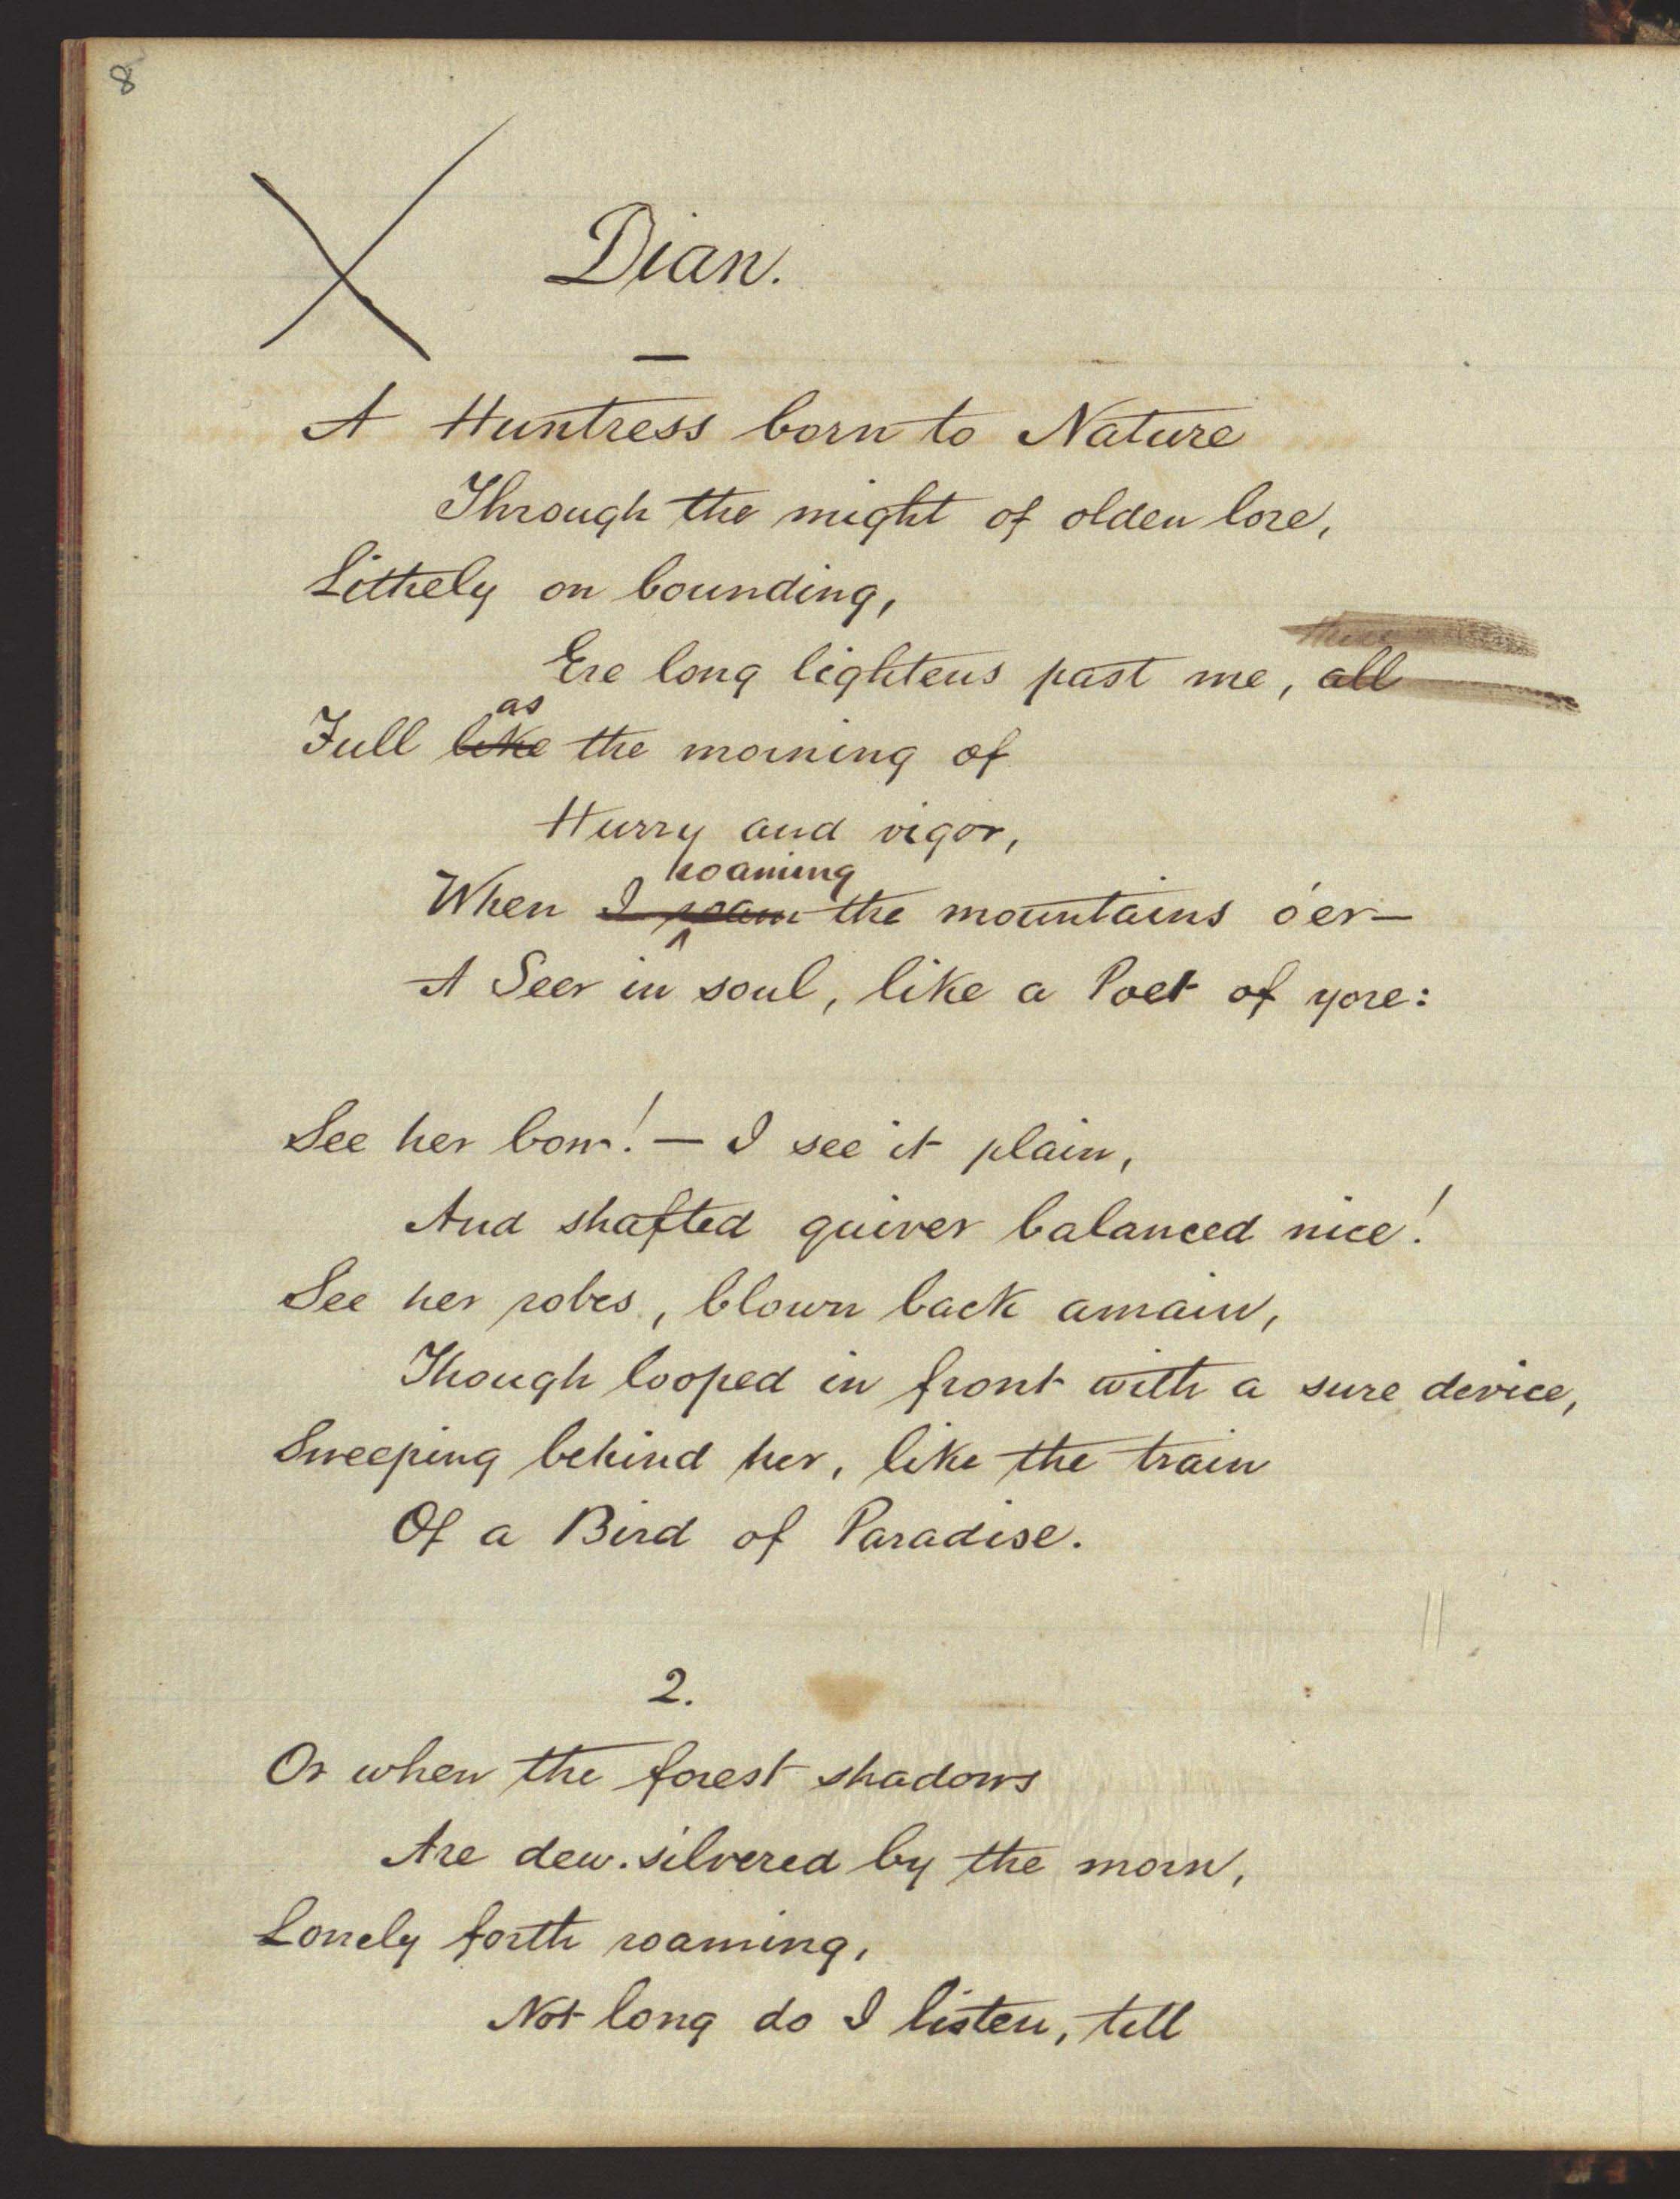 8
Dian.
A Huntress born to Nature
Through the might of olden lore,
Lithely on bounding,
Ere long lightens past me, all
as
Full like the morning of
Hurry and vigor,
roaming
When I roam the mountains o'er—
A Seer in soul, like a Poet of yore:
See her bow! — I see it plain,
And shafted quiver balanced nice!
See her robes, blown back amain,
Though looped in front with a sure device,
Sweeping behind her, like the train
Of a Bird of Paradise.
2.
Or when the forest shadows
Are dew-silvered by the morn,
Lonely forth roaming,
Not long do I listen, till